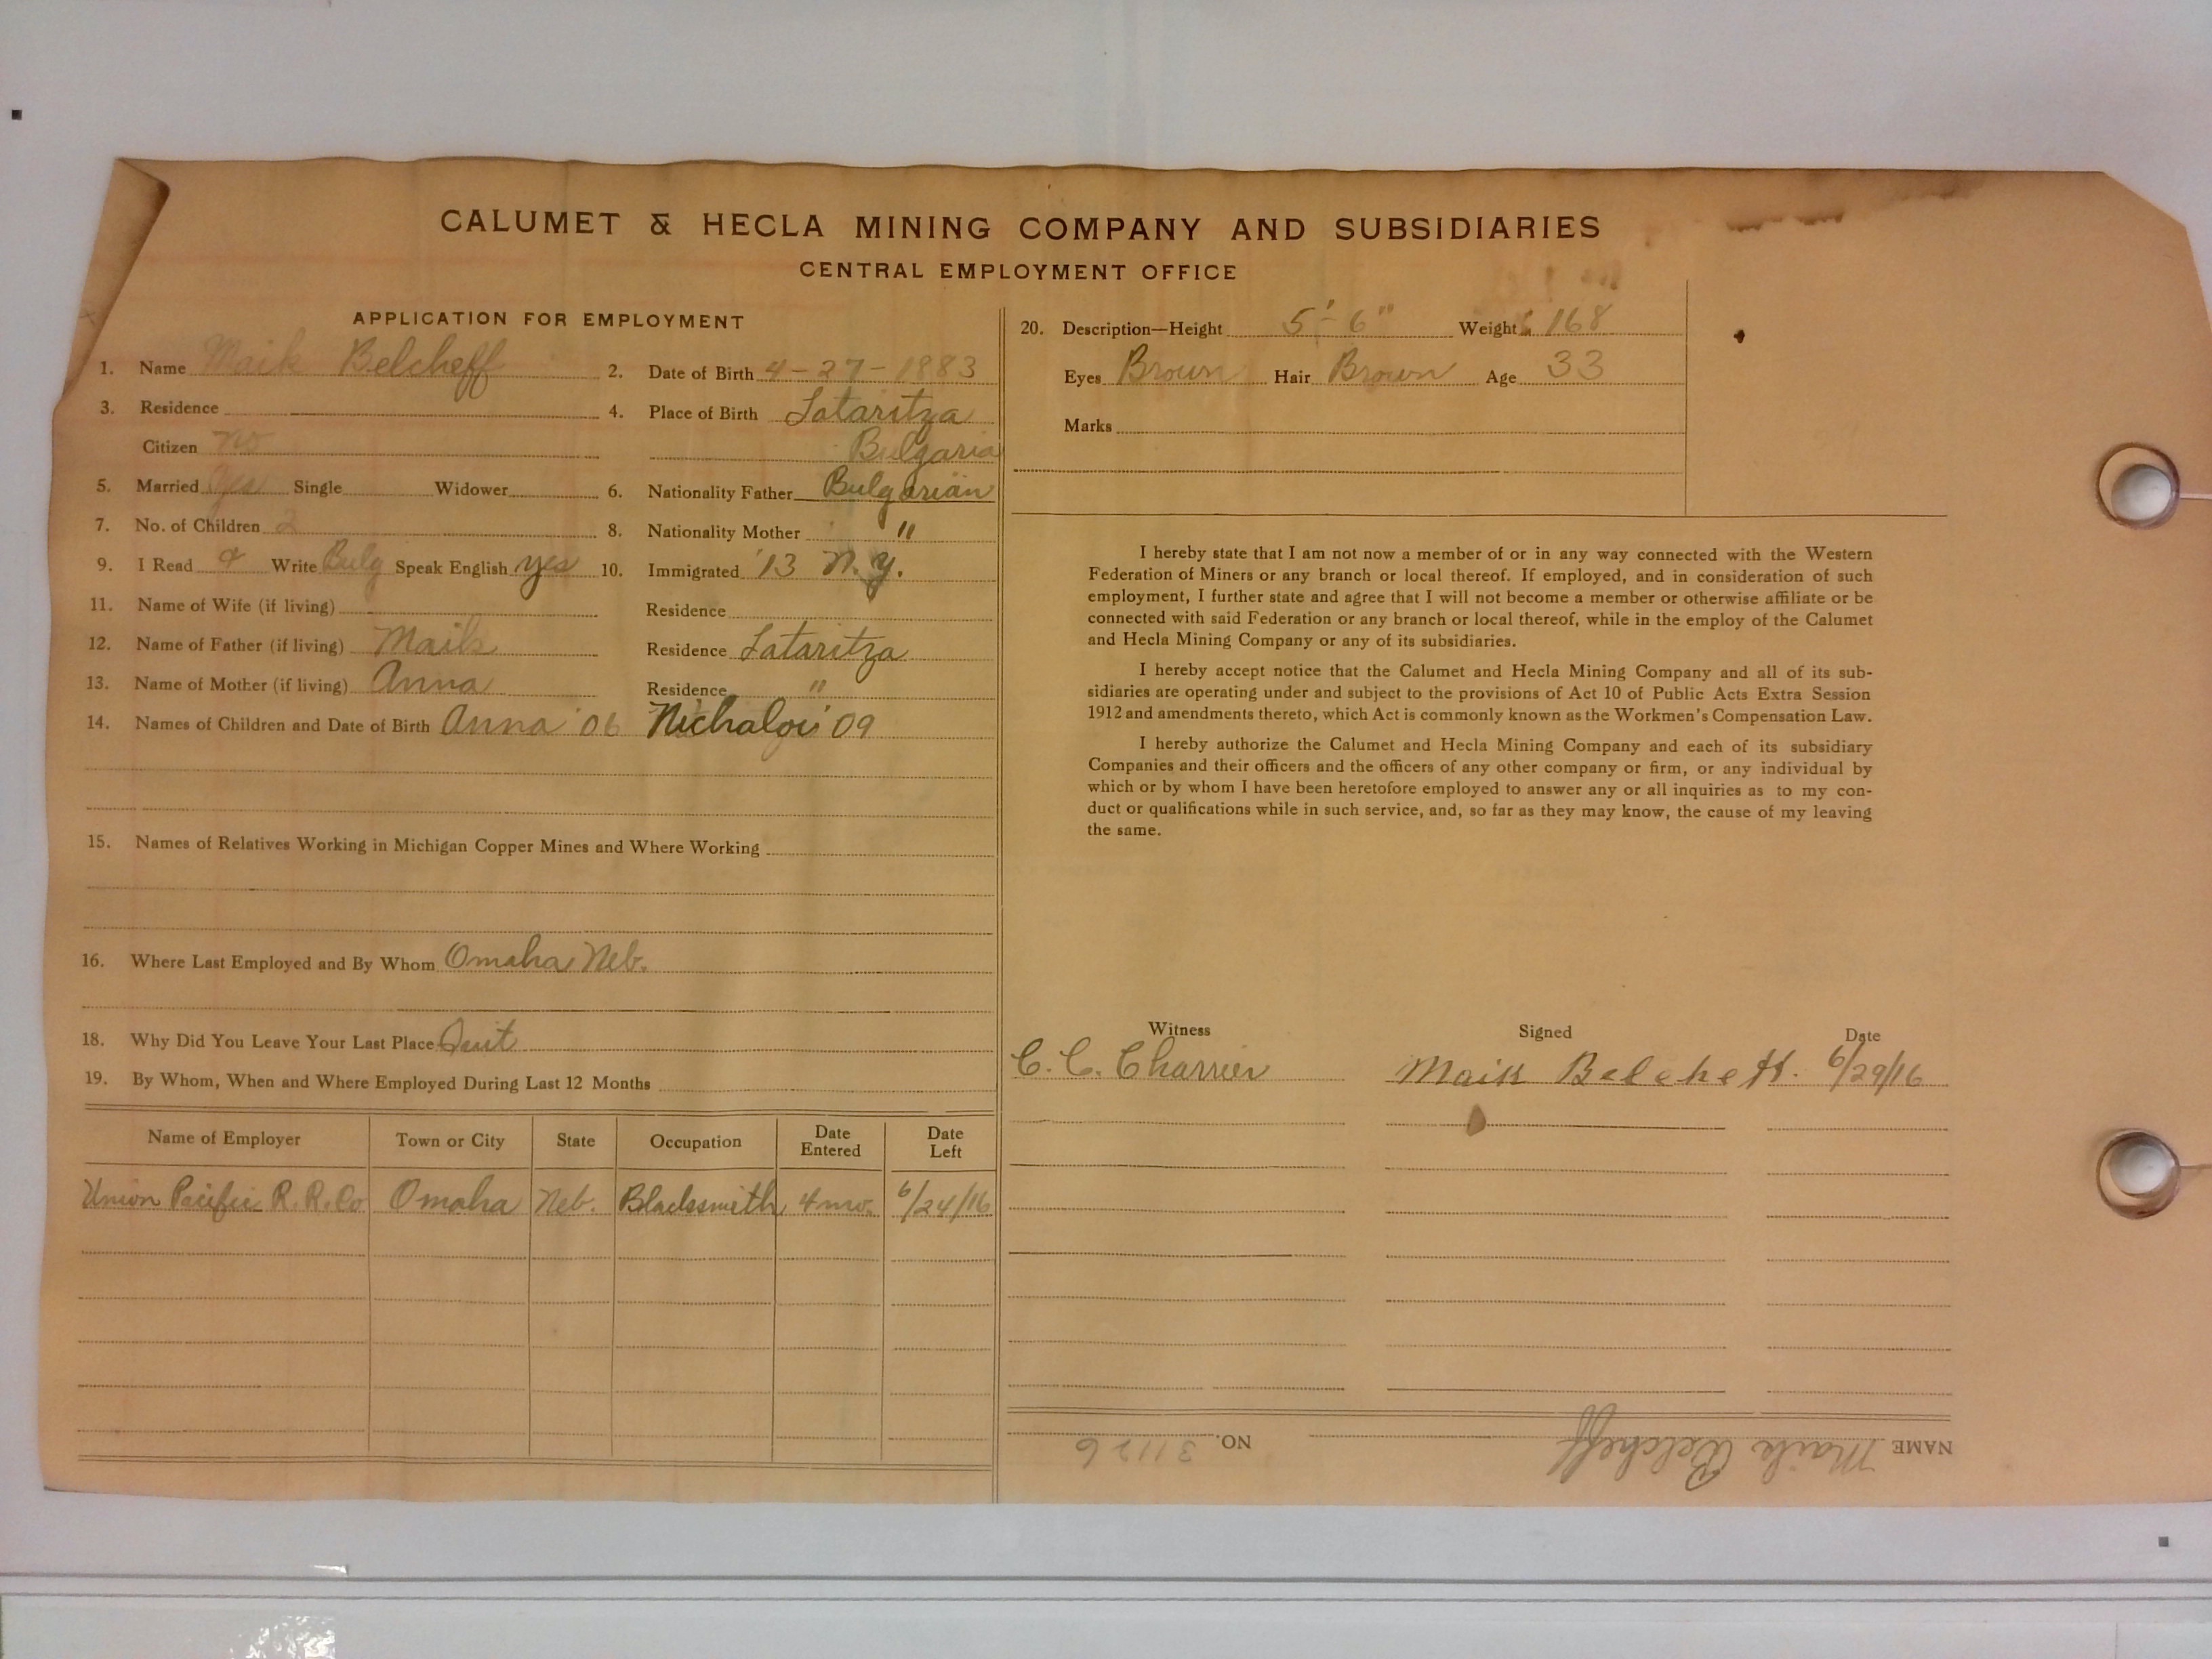 CALUMET & HECLA MINING COMPANY AND SUBSIDIARIES
CENTRAL EMPLOYMENT OFFICE
APPLICATION FOR EMPLOYMENT
1. Name Maik Belcheff 2. Date of Birth 4-27-1883
3. Residence 4. Place of Birth Lataritza
Citizen no Bulgaria
5. Married Yes Single Widower 6. Nationality Father Bulgarian
7. No. of Children 2 8. Nationality Mother "
9. I Read & Write Bulg Speak English yes 10. Immigrated '13 N.Y.
11. Name of Wife (if living) Residence
12. Name of Father (if living) Maik Residence Lataritza
13. Name of Mother (if living) Anna Residence "
14. Names of Children and Date of Birth Anna '06 Nichaloi '09
15. Names of Relatives Working in Michigan Copper Mines and Where Working
16. Where Last Employed and By Whom Omaha Neb.
18. Why Did You Leave Your Last Place Quit
19. By Whom, When and Where Employed During Last 12 Months
Name of Employer Town or City State Occupation Date Entered Date Left
Union Pacific R.R.Co Omaha Neb. Blacksmith 4 mo. 6/24/16
20. Description—Height 5'-6" Weight 168
Eyes Brown Hair Brown Age 33
Marks
I hereby state that I am not now a member of or in any way connected with the Western
Federation of Miners or any branch or local thereof. If employed, and in consideration of such
employment, I further state and agree that I will not become a member or otherwise affiliate or be
connected with said Federation or any branch or local thereof, while in the employ of the Calumet
and Hecla Mining Company or any of its subsidiaries.
I hereby accept notice that the Calumet and Hecla Mining Company and all of its sub-
sidiaries are operating under and subject to the provisions of Act 10 of Public Acts Extra Session
1912 and amendments thereto, which Act is commonly known as the Workmen's Compensation Law.
I hereby authorize the Calumet and Hecla Mining Company and each of its subsidiary
Companies and their officers and the officers of any other company or firm, or any individual by
which or by whom I have been heretofore employed to answer any or all inquiries as to my con-
duct or qualifications while in such service, and, so far as they may know, the cause of my leaving
the same.
Witness Signed Date
C. C. Charrier Maik Belcheff. 6/29/16
NAME Maik Belcheff NO. 31126